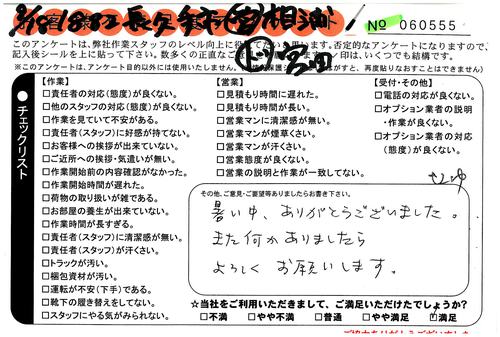 No 060555
このアンケートは、弊社作業スタッフのレベル向上に
思います。否定的なアンケートになりますので、
記入後シールを上に貼って下さい。
印は、いくつでも結構です。
※このアンケートは、アンケート目的以外には使用いたしません。
チェックリスト
【作業】
□責任者の対応(態度)が良くない。
□他のスタッフの対応(態度)が良くない。
□作業を見ていて不安がある。
□責任者(スタッフ)に好感が持てない。
□お客様への挨拶が出来ていない。
□ご近所への挨拶・気遣いが無い。
□作業開始前の内容確認がなかった。
□作業開始時間が遅れた。
□荷物の取り扱いが雑である。
□お部屋の養生が出来ていない。
□作業時間が長すぎる。
□責任者(スタッフ)に清潔感が無い。
□責任者(スタッフ)が汗くさい。
□トラックが汚い。
□梱包資材が汚い。
□運転が不安(下手)である。
□靴下の履き替えをしてない。
□スタッフにやる気がみられない。
【営業】
□見積もり時間に遅れた。
□見積もり時間が長い。
□営業マンに清潔感が無い。
□営業マンが煙草くさい。
□営業マンが汗くさい。
□営業態度が良くない。
□営業の説明と作業が一致してない。
【受付・その他】
□電話の対応が良くない。
□オプション業者の説明
・作業が良くない。
□オプション業者の対応
(態度)が良くない。
その他、ご意見・ご要望等ありましたらお書き下さい。
暑い中、ありがとうございました。
また何かありましたら
よろしくお願いします。
☆当社をご利用いただきまして、ご満足いただけたでしょうか?
□不満 □やや不満 □普通 □やや満足 ☑満足
ご協力ありがとうございました